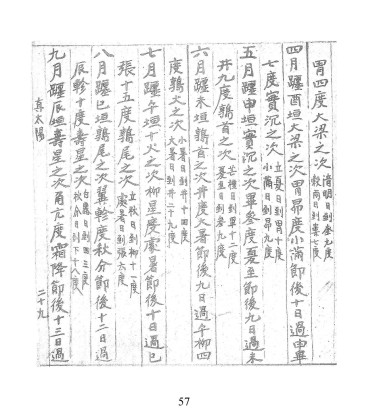 胃四度大梁之次 清明日到奎九度
穀雨日到婁七度
四月躔酉垣大梁之次胃昴度小滿節後十日過申畢
七度實沉之次 立夏日到胃十度
小滿日到昴九度
五月躔申垣實沉之次畢參度夏至節後九日過未
井九度鶉首之次 芒種日到畢十二度
夏至日到參九度
六月躔未垣鶉首之次井度大暑節後九日過午柳四
度鶉火之次 小暑日到井十四度
大暑日到井二十九度
七月躔午垣十火之次柳星度處暑節後十日過巳
張十五度鶉尾之次 立秋日到柳十一度
處暑日到張六度
八月躔巳垣鶉尾之次翼軫度秋分節後十二日過
辰軫十度壽星之次 白露日到三度
秋分日到十八度
九月躔辰垣壽星之次角亢度霜降節後十三日過
真太陽 二十九
57